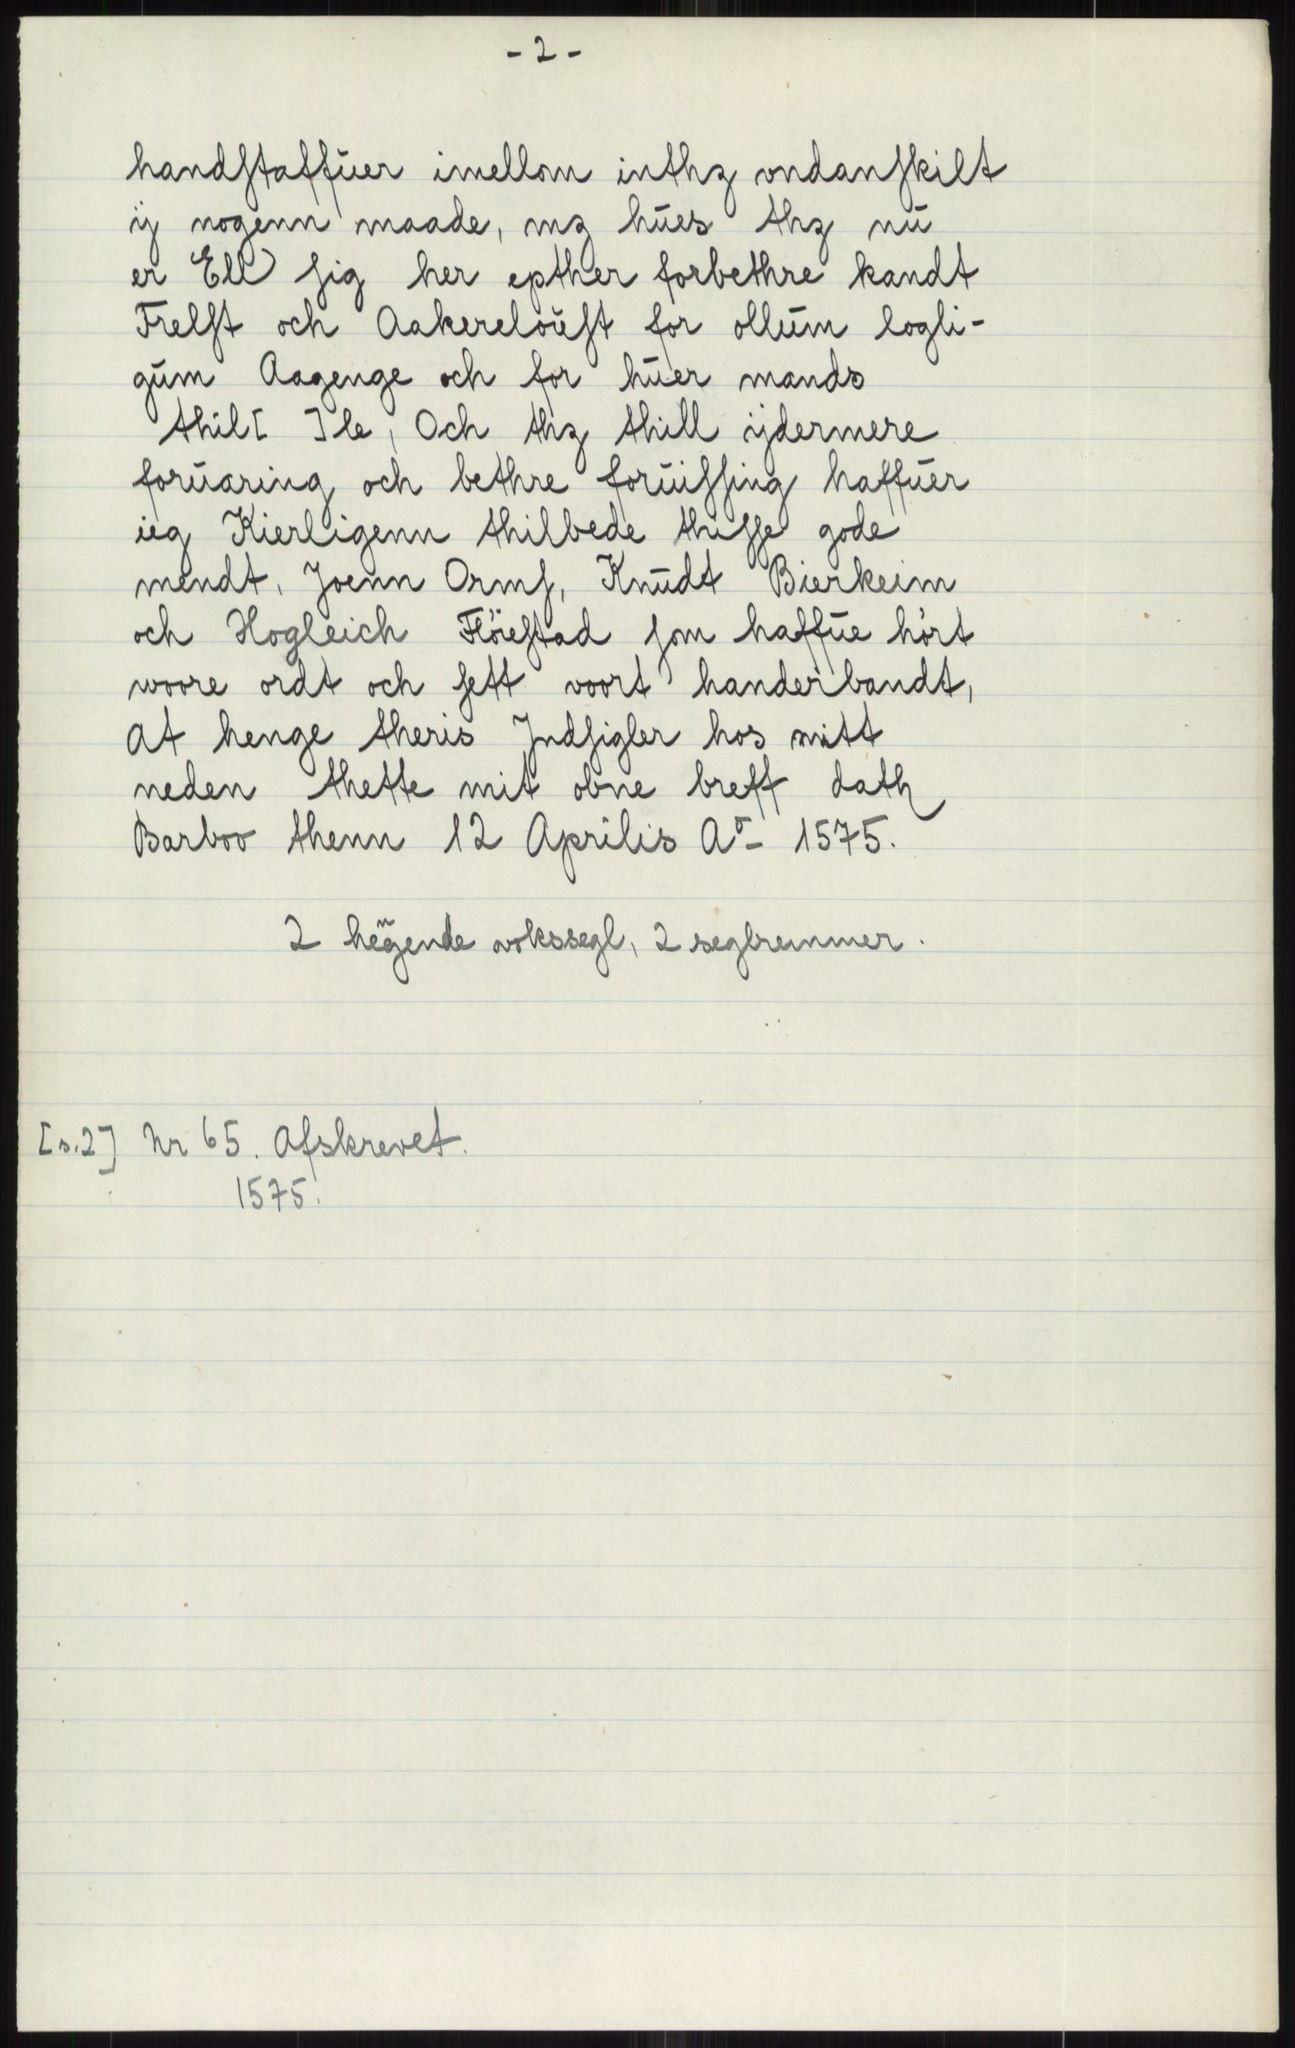 - 2 -
handſtaffŭer imellom inthz vndanſkilt
ij nogenn maade, mz hŭes thz nŭ
er Ell ſig her epther forbethre kandt
Frelſt och Aakereloŭſt for ollŭm logli-
gŭm Aagenge och for hŭer mands
thil[ ]le, Och thz thill ijdermere
forŭaring och bethre forŭiſſing haffŭer
ieg Kierligenn thilbede thiſſe gode
mendt, Joenn Ormſ, Knŭdt Bierkeim
och Hogleich Flöeſtad ſom haffŭe hört
woore ordt och ſett voort handerbandt,
At henge theris Jndſigler hos mitt
neden thette mit obne breff dath
Barboo thenn 12 Aprilis Aº 1575.
2 hengende vokssegl, 2 seglremmer.
[s.2] Nr 65. Afskrevet.
1575.